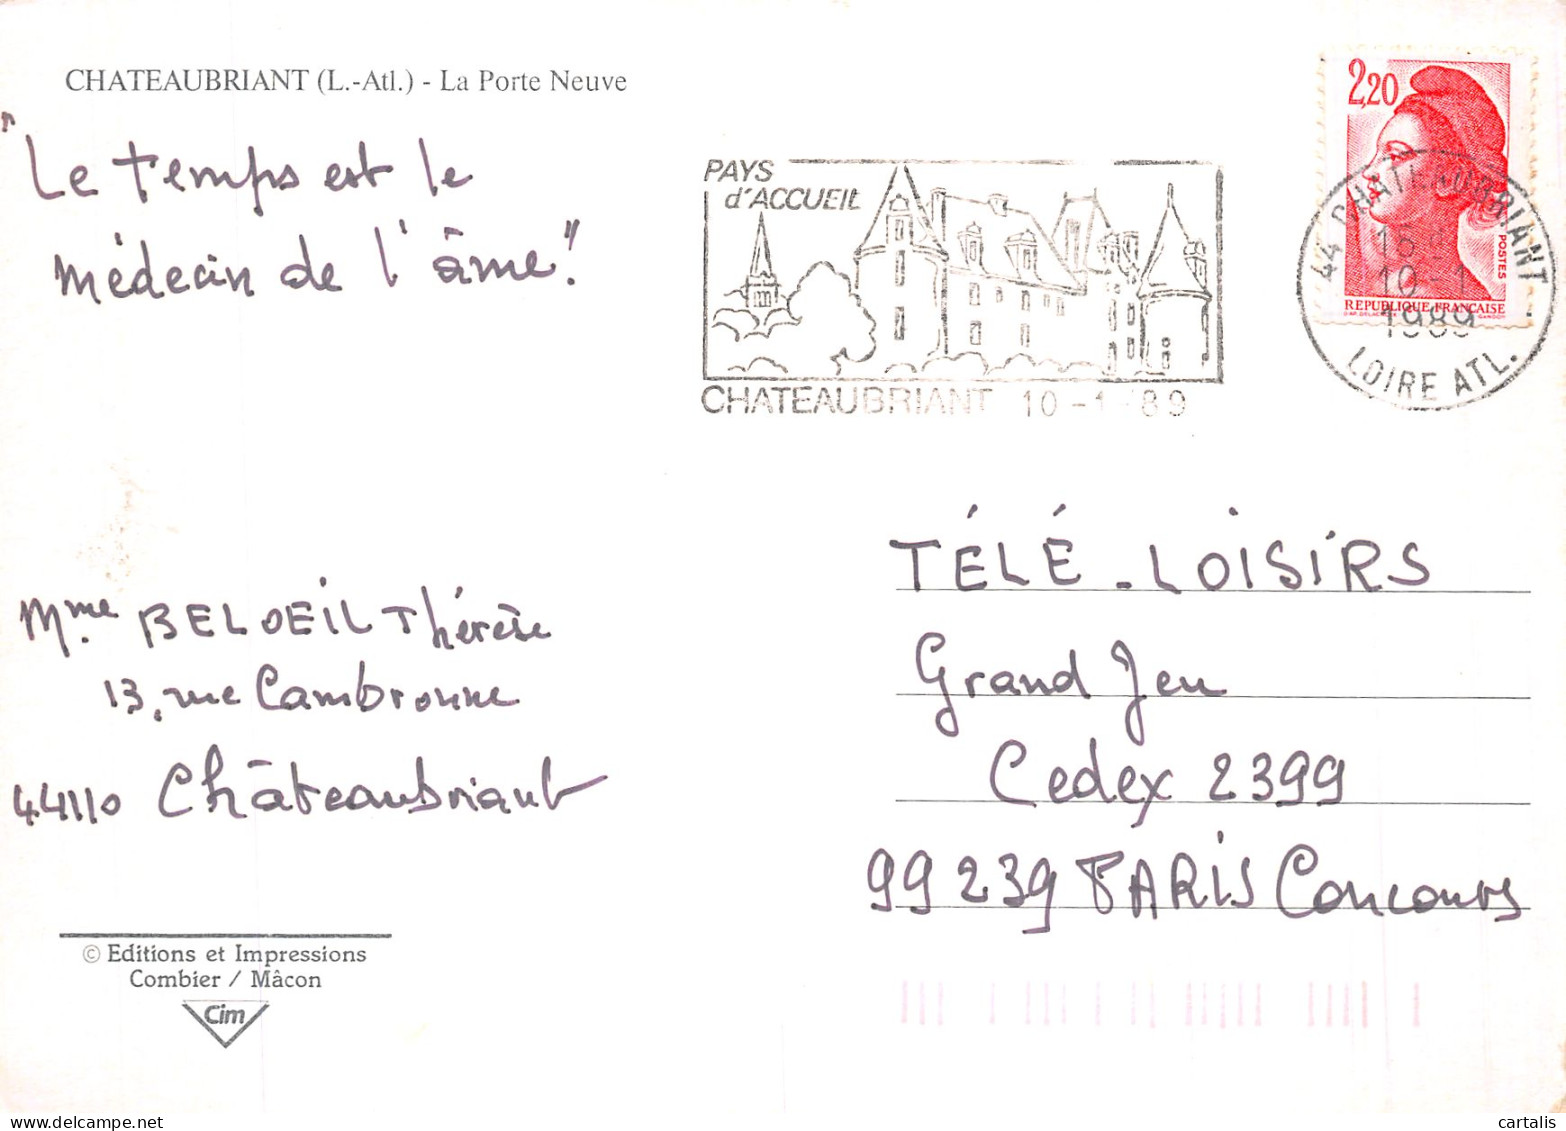 CHATEAUBRIANT (L.-Atl.) - La Porte Neuve
"Le temps est le
médecin de l'âme"
Mme BELOEIL Thérèse
13, rue Cambronne
44110 Châteaubriant
© Editions et Impressions
Combier / Mâcon
Cim
PAYS
d'ACCUEIL
CHATEAUBRIANT 10-1 '89
2,20
POSTES
REPUBLIQUE FRANÇAISE
44 CHATEAUBRIANT
10-1
1989
LOIRE ATL.
TÉLÉ-LOISIRS
Grand Jeu
Cedex 2399
99239 PARIS Concours
cartalis